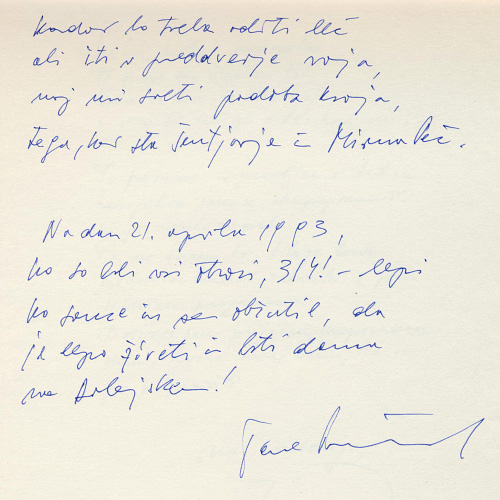 Kadar bo treba oditi leč
ali iti v preddverje raja,
naj mi sveti podoba kraja,
tega, kar sta Šentjanje in Mirna Peč.
Na dan 21. aprila 1993,
ko so bili vsi otroci, 3/4! - lepi
ko sonce in sem občutil, da
je lepo živeti in biti doma
na Dolenjskem!
Tone